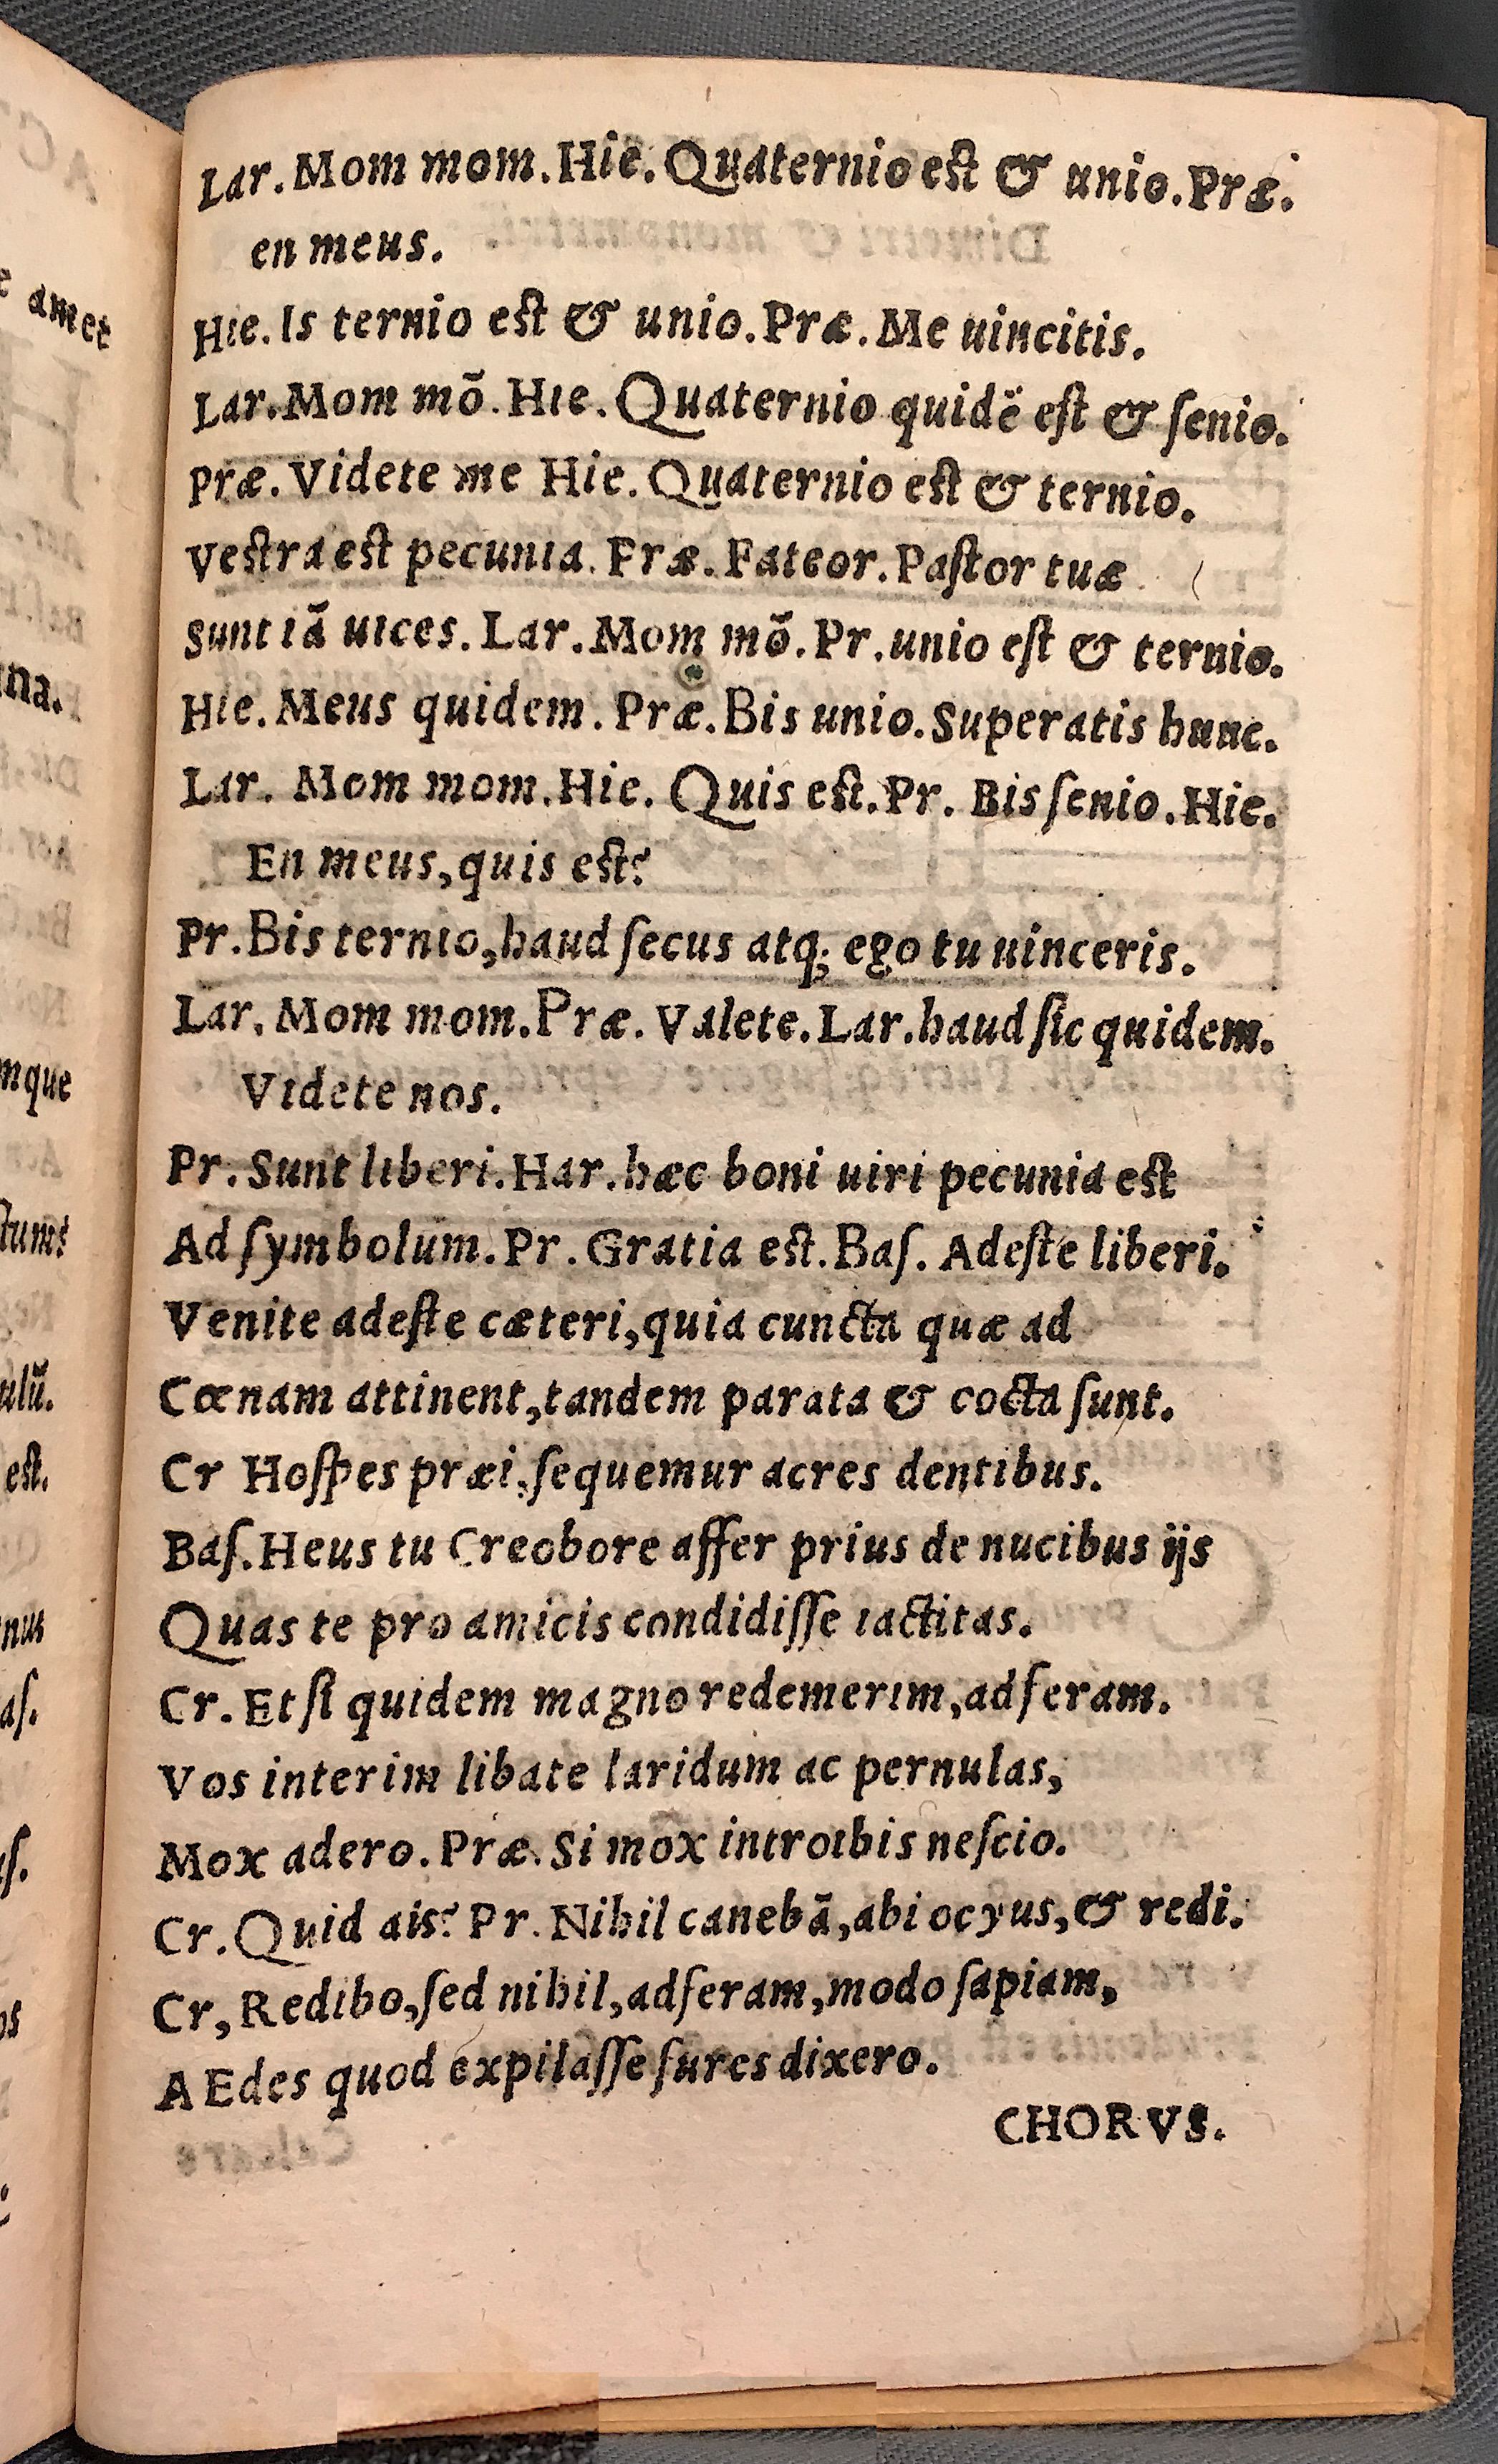 Lar. Mom mom. Hie. Quaternio est & unio. Præ.
en meus.
Hie. Is ternio est & unio. Præ. Me uincitis.
Lar. Mom mõ. Hie. Quaternio quidẽ eſt & ſenio.
Præ. Videte me Hie. Quaternio est & ternio.
Vestra est pecunia. Præ. Fateor. Paſtor tuæ
Sunt iã uices. Lar. Mom mõ. Pr. unio eſt & ternio.
Hie. Meus quidem. Præ. Bis unio. Superatis hunc.
Lar. Mom mom. Hie. Quis est. Pr. Bis ſenio. Hie.
En meus, quis est?
Pr. Bis ternio, haud ſecus atq; ego tu uinceris.
Lar. Mom mom. Præ. Valete. Lar. haud ſic quidem.
Videte nos.
Pr. Sunt liberi. Har. hæc boni uiri pecunia est
Ad ſymbolum. Pr. Gratia est. Baſ. Adeſte liberi.
Venite adeſte cæteri, quia cuncta quæ ad
Cœnam attinent, tandem parata & cocta ſunt.
Cr Hoſpes præi, ſequemur acres dentibus.
Baſ. Heus tu Creobore affer prius de nucibus ijs
Quas te pro amicis condidiſſe iactitas.
Cr. Et ſi quidem magno redemerim, adferam.
Vos interim libate laridum ac pernulas,
Mox adero. Præ. Si mox introibis neſcio.
Cr. Quid ais? Pr. Nihil canebã, abi ocyus, & redi.
Cr, Redibo, ſed nihil, adferam, modo ſapiam,
AEdes quod expilaſſe fures dixero.
CHORVS.
amet
ina.
mque
ulũ.
est.
nus
aſ.